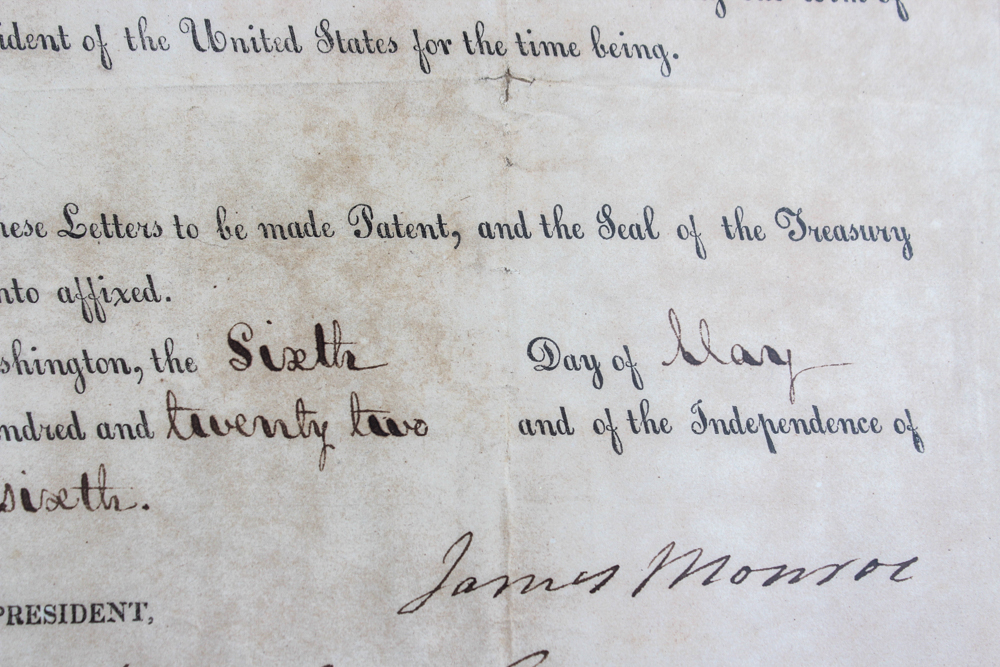 ident of the United States for the time being.
hese Letters to be made Patent, and the Seal of the Treasury
nto affixed.
shington, the Sixth Day of May
ndred and twenty two and of the Independence of
sixth.
James Monroe
PRESIDENT,